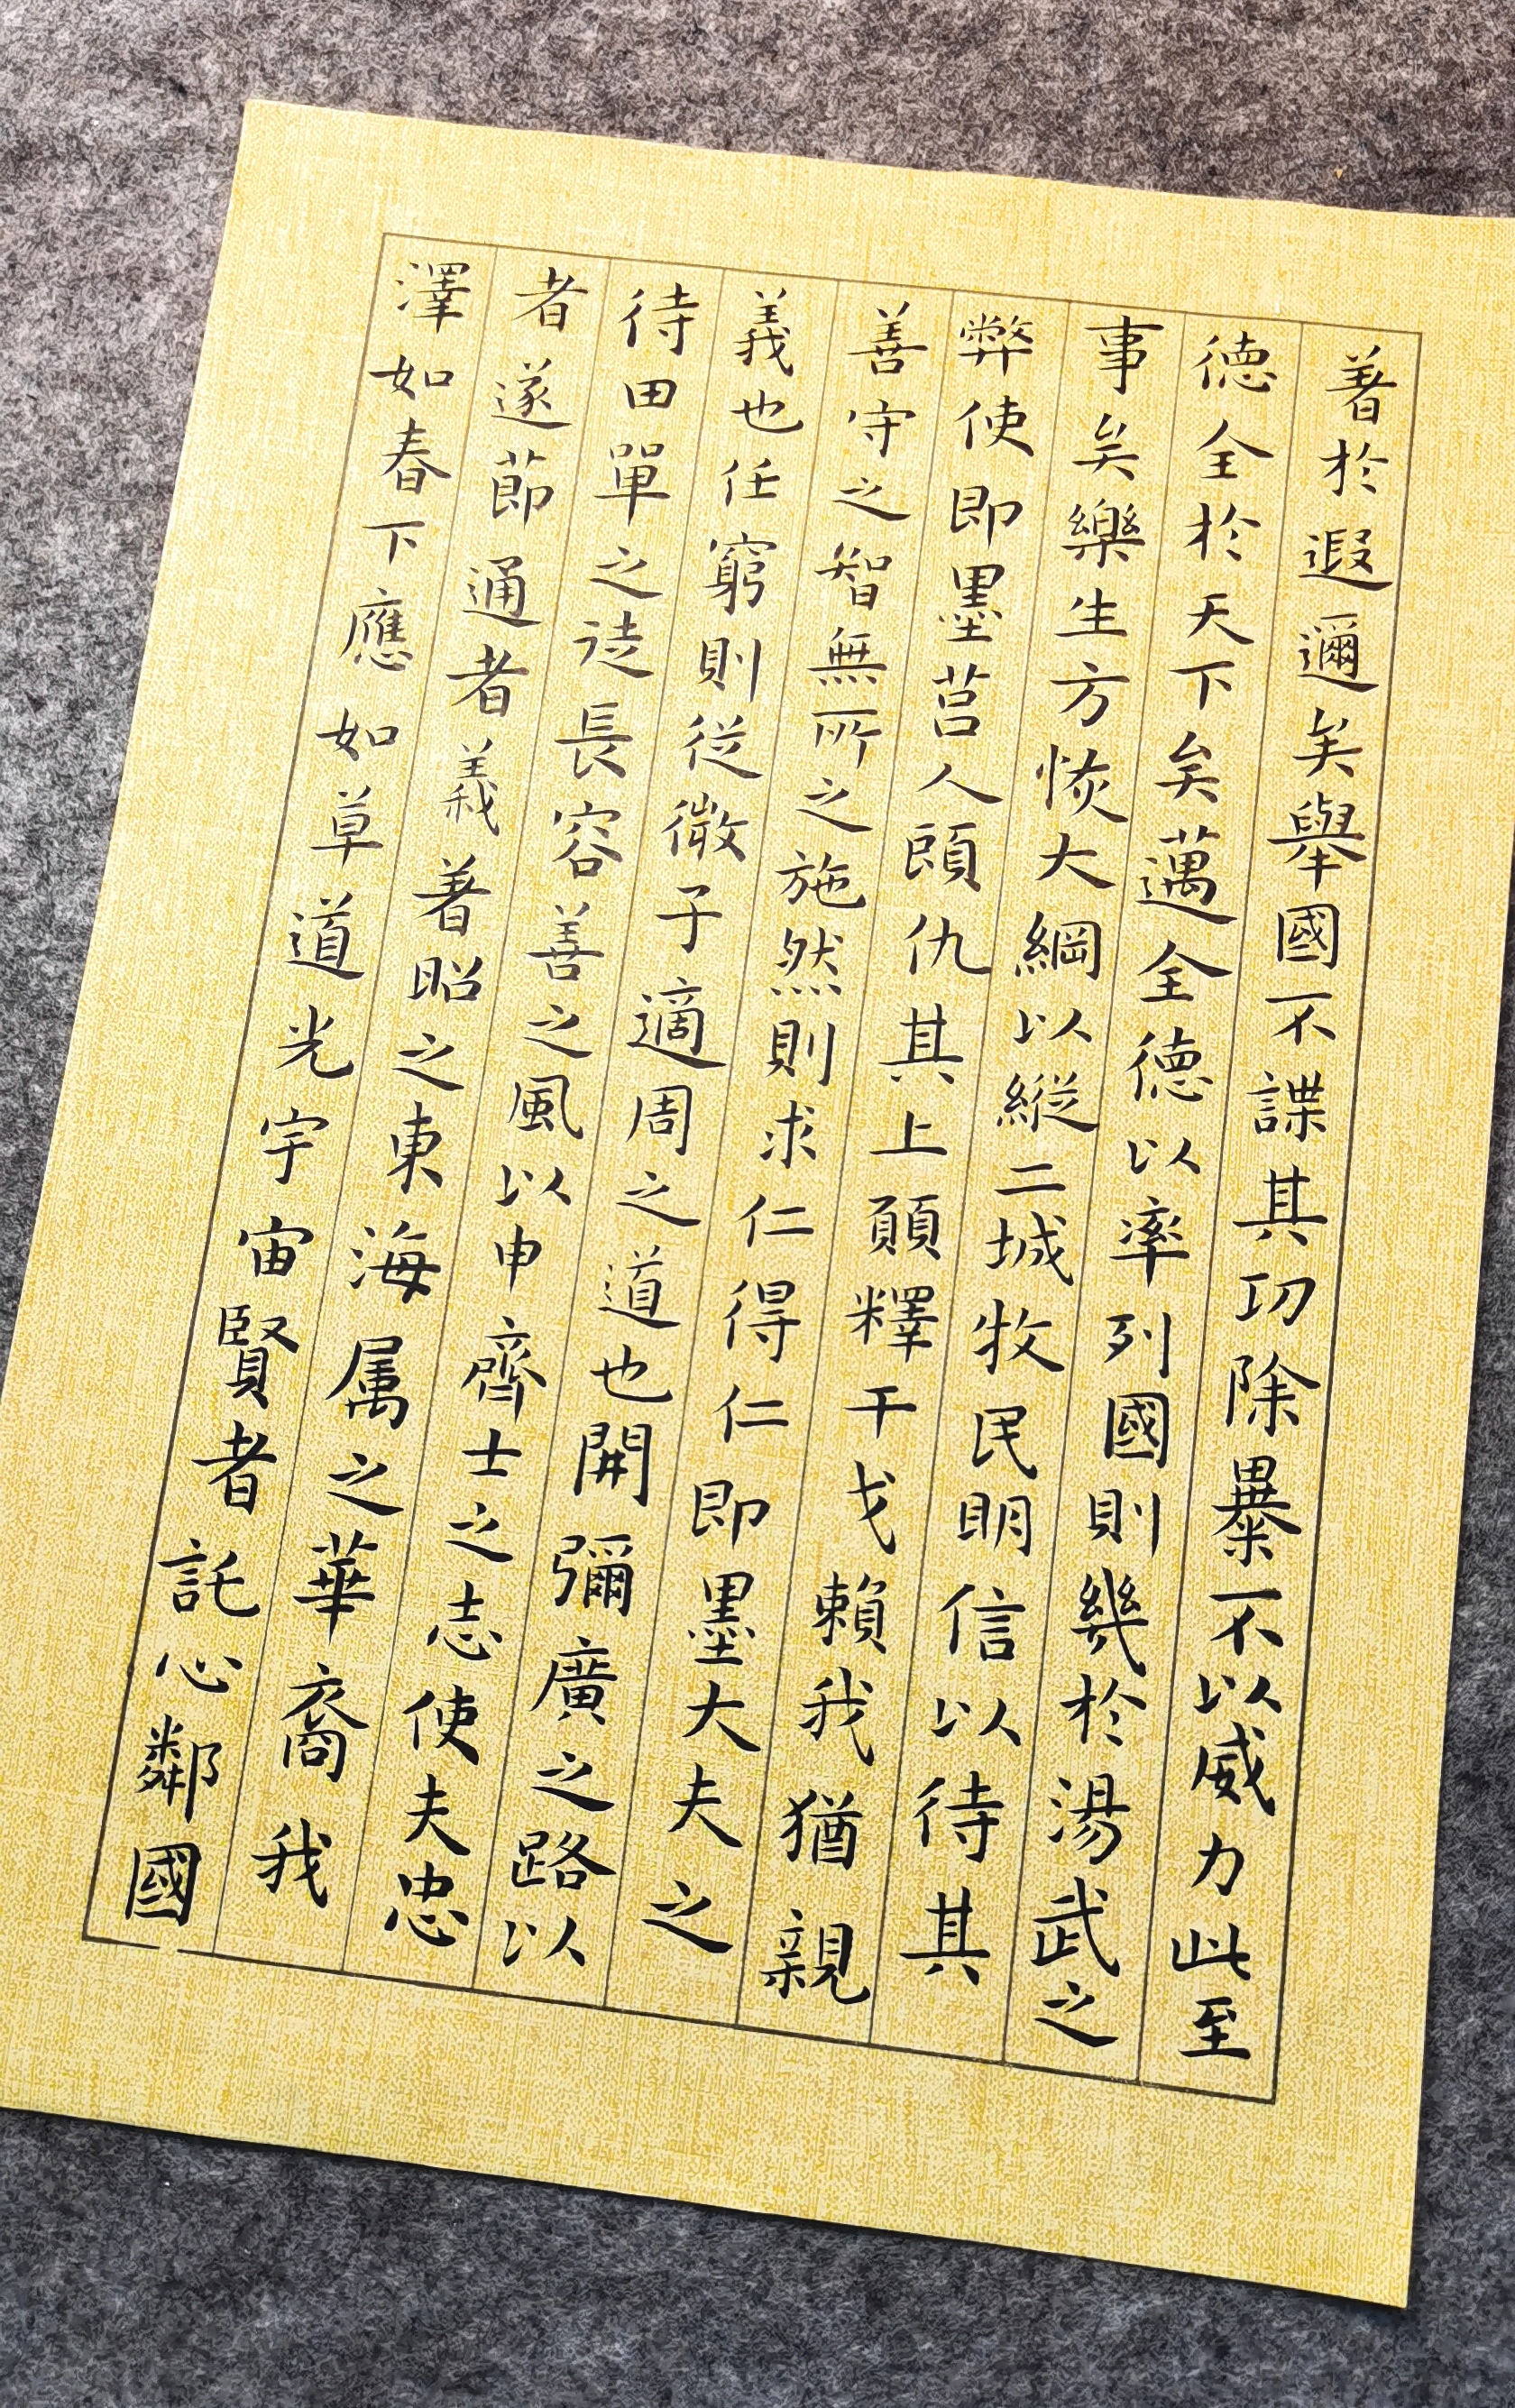 著於遐邇矣舉國不謀其功除暴不以威力此至
德全於天下矣邁全德以率列國則幾於湯武之
事矣樂生方恢大綱以縱二城牧民明信以待其
弊使即墨莒人顧仇其上願釋干戈賴我猶親
善守之智無所之施然則求仁得仁即墨大夫之
義也任窮則從微子適周之道也開彌廣之路以
待田單之徒長容善之風以申齊士之志使夫忠
者遂節通者義著昭之東海属之華裔我
澤如春下應如草道光宇宙賢者託心鄰國